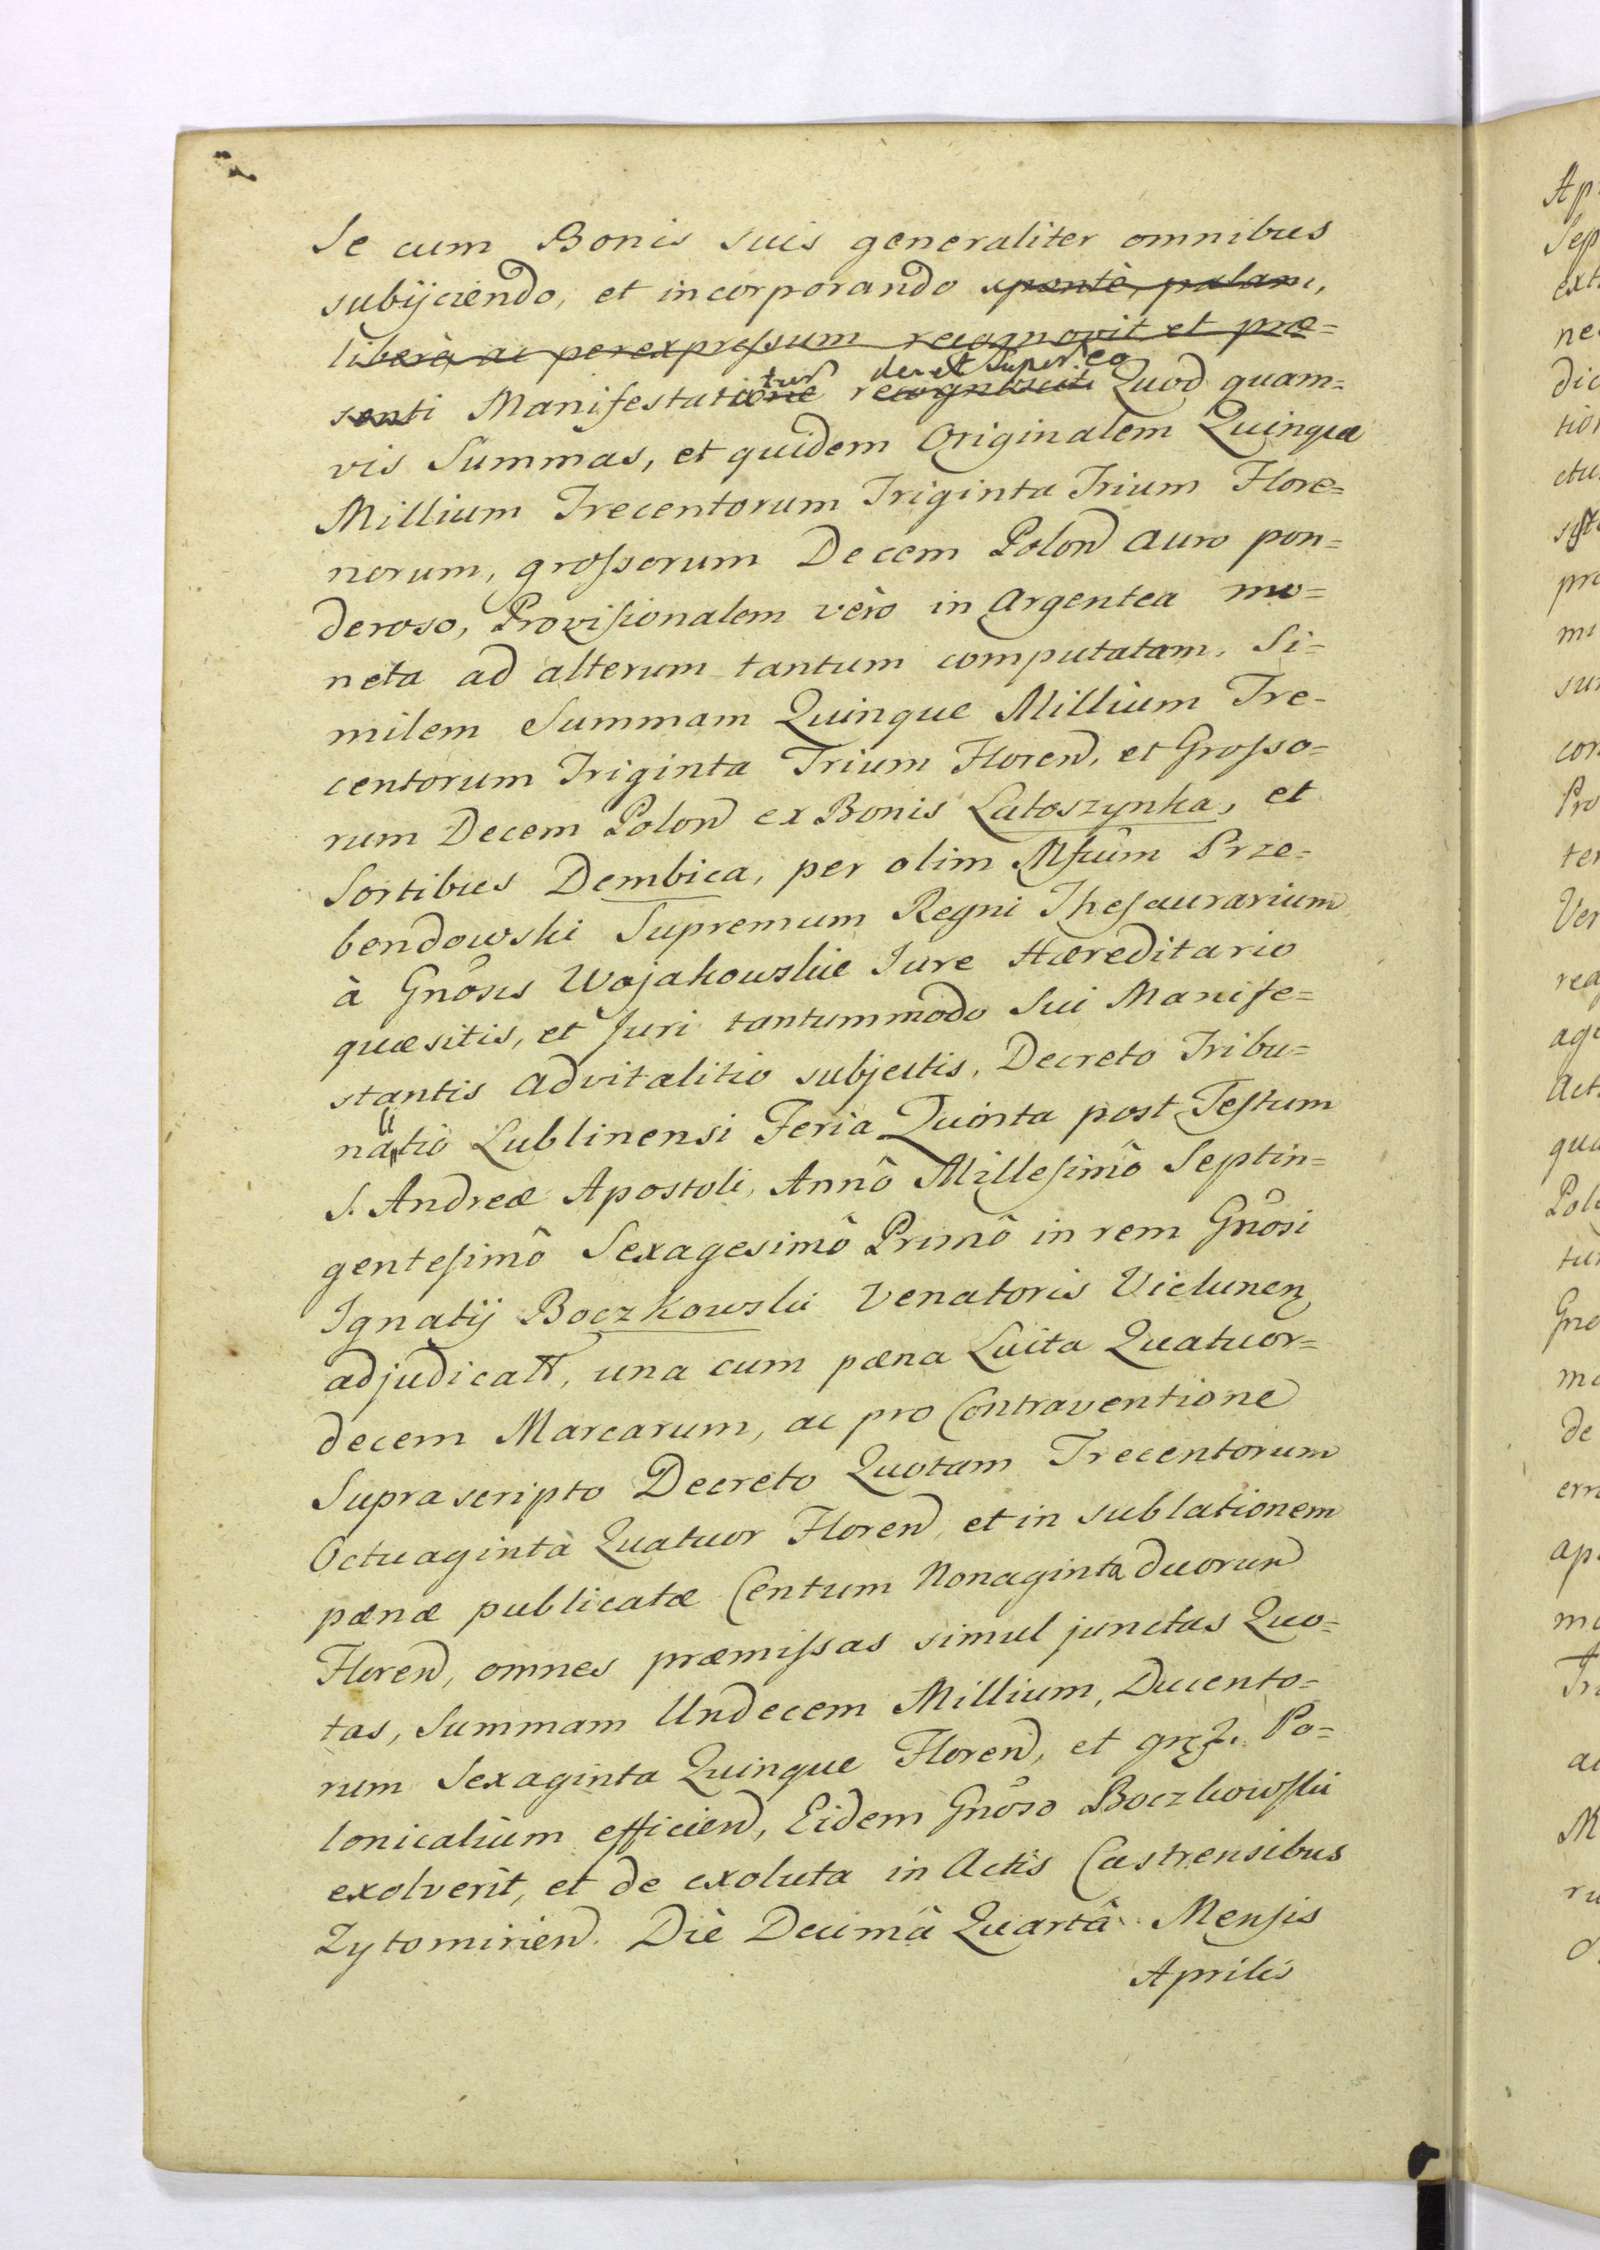 Se cum Bonis suis generaliter omnibus
subijciendo, et incorporando spontè, palam,
liberè, ac perexpressum recognovit et præ=
senti Manifestatione tur recognoscit de et super eo Quod quam=
vis Summas, et quidem Originalem Quinque
Millium Trecentorum Triginta Trium Flore=
norum, grossorum Decem Polon auro pon=
deroso, Provisionalem vèro in Argentea mo=
neta ad alterum tantum computatam, Si=
milem Summam Quinque Millium Tre=
centorum Triginta Trium Floren, et Grosso=
rum Decem Polon ex Bonis Latoszynka, et
Sortibus Dembica, per olim Mfcûm Prze=
bendowski Supremum Regni Thesaurarium
à Gnosis Wojakowskie Jure Hæreditario
quæsitis, et Juri tantummodo Sui Manife=
stantis advitalitio subjectis, Decreto Tribu=
nalitio Lublinensi Feria Quinta post Festum
S. Andreæ Apostoli, Annô Millesimô Septin=
gentesimô Sexagesimô Primô in rem Gnosi
Ignatij Boczkowski Venatoris Vielunen
adjudicatt, una cum pæna Luita Quatuor=
decem Marcarum, ac pro Contraventione
Supra scripto Decreto Quotam Trecentorum
Octuagintà Quatuor Floren, et in sublationem
pænæ publicatæ Centum Nonaginta duorum
Floren, omnes præmissas simul junctas Quo=
tas, Summam Undecem Millium, Ducento=
rum Sexaginta Quinque Floren, et Po=
lonicalium efficien, Eidem Gnoso Boczkowski
exolverit, et de exoluta in Actis Castrensibus
Zytomirien. Diè Decimâ Quartâ Mensis
Aprilis